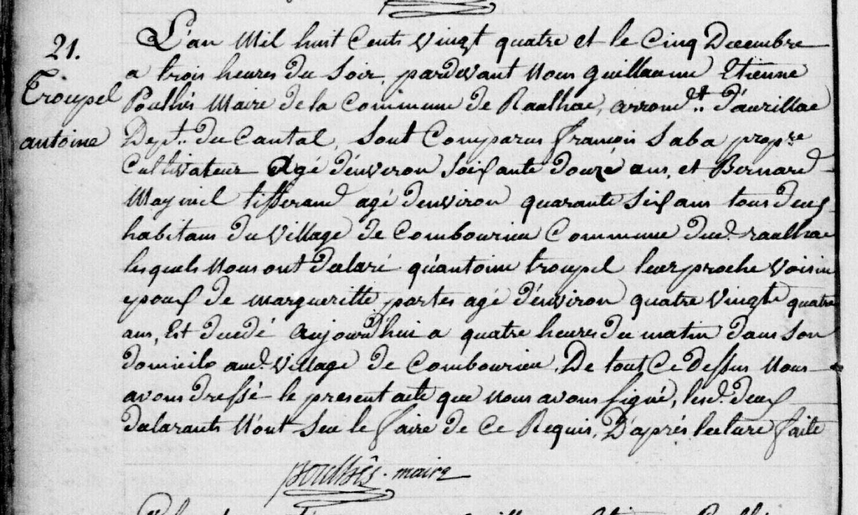 21.
Troupel
antoine
L'an Mil huit Cents Vingt quatre et le Cinq Decembre
a trois heures du Soir, pardevant Nous guillaume Etienne
Poulhès Maire de la Commune de Raulhac, arrond.t d'aurillac
Dep.t du Cantal, Sont Comparus françois Saba prop.re
Cultivateur Agé d'environ Soixante douze ans, et Bernard
tisserand agé d'environ quarante Six ans tous deux
habitans du Village de Combourieu Commune dud. raulhac
lesquels Nous ont dalaré qu'antoine troupel leur proche Voisin
epoux de margueritte partes agé d'environ quatre Vingts quatre
ans, Est dècedé aujourd'hui a quatre heures du matin dans Son
domicile aud. Village de Combourieu. De tout Ce dessus Nous
avons dressé le present acte que Nous avons signé, lesd. deux
dalarants N'ont Seu le faire de Ce Requis. D'après lecture faite
poulhès. maire